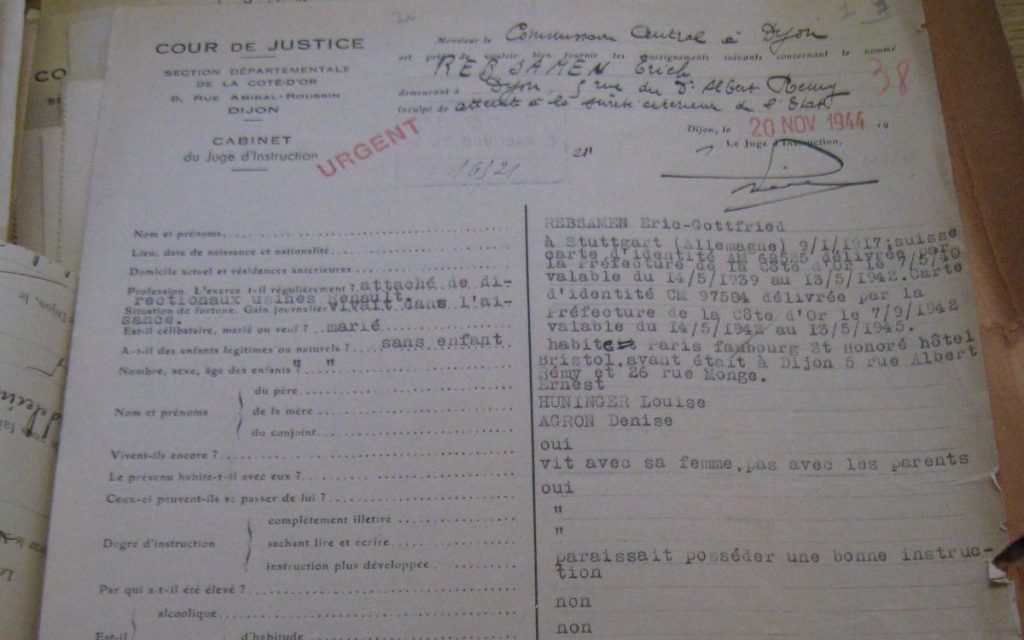 COUR DE JUSTICE
SECTION DÉPARTEMENTALE
DE LA COTE-D'OR
8, RUE AMIRAL-ROUSSIN
DIJON
CABINET
du Juge d'Instruction
URGENT
Monsieur le Commissaire Central à Dijon
est prié de vouloir bien fournir les renseignements suivants concernant le nommé
REBSAMEN Erich
demeurant à Dijon, 5 rue du Dr Albert Remy
inculpé de atteinte à la sureté extérieure de l'Etat
38
Dijon, le 20 NOV 1944 19
Le Juge d'Instruction,
16/21
21"
Nom et prénoms
REBSAMEN Eric-Gottfried
Lieu, date de naissance et nationalité
à Stuttgart (Allemagne) 9/1/1917;suisse
carte d'identité AM 68525 délivrée par
Domicile actuel et résidences antérieures
la Préfecture de la Côte d'Or le 7/5/40
valable du 14/5/1939 au 13/5/1942.Carte
Profession. L'exerce t-il régulièrement ? attaché de di-
rectionaux usines Renault
d'identité CM 97584 délivrée par la
Situation de fortune. Gain journalier vivait dans l'ai-
sance.
Préfecture de la Côte d'Or le 7/9/1942
Est-il célibataire, marié ou veuf ? marié
valable du 14/5/1942 au 13/5/1945.
A-t-il des enfants légitimes ou naturels ? sans enfant
habite Paris faubourg St Honoré hôtel
Nombre, sexe, âge des enfants " "
Bristol,avant était à Dijon 5 rue Albert
Rémy et 26 rue Monge.
Nom et prénoms
du père
Ernest
de la mère
HUNINGER Louise
du conjoint
AGRON Denise
Vivent-ils encore ?
oui
Le prévenu habite-t-il avec eux ?
vit avec sa femme,pas avec les parents
Ceux-ci peuvent-ils se passer de lui ?
oui
Degré d'instruction
complètement illetiré
"
sachant lire et écrire
"
instruction plus développée
paraissait posséder une bonne instruc-
tion
Par qui a-t-il été élevé ?
alcoolique
non
Est-il
d'habitude
non